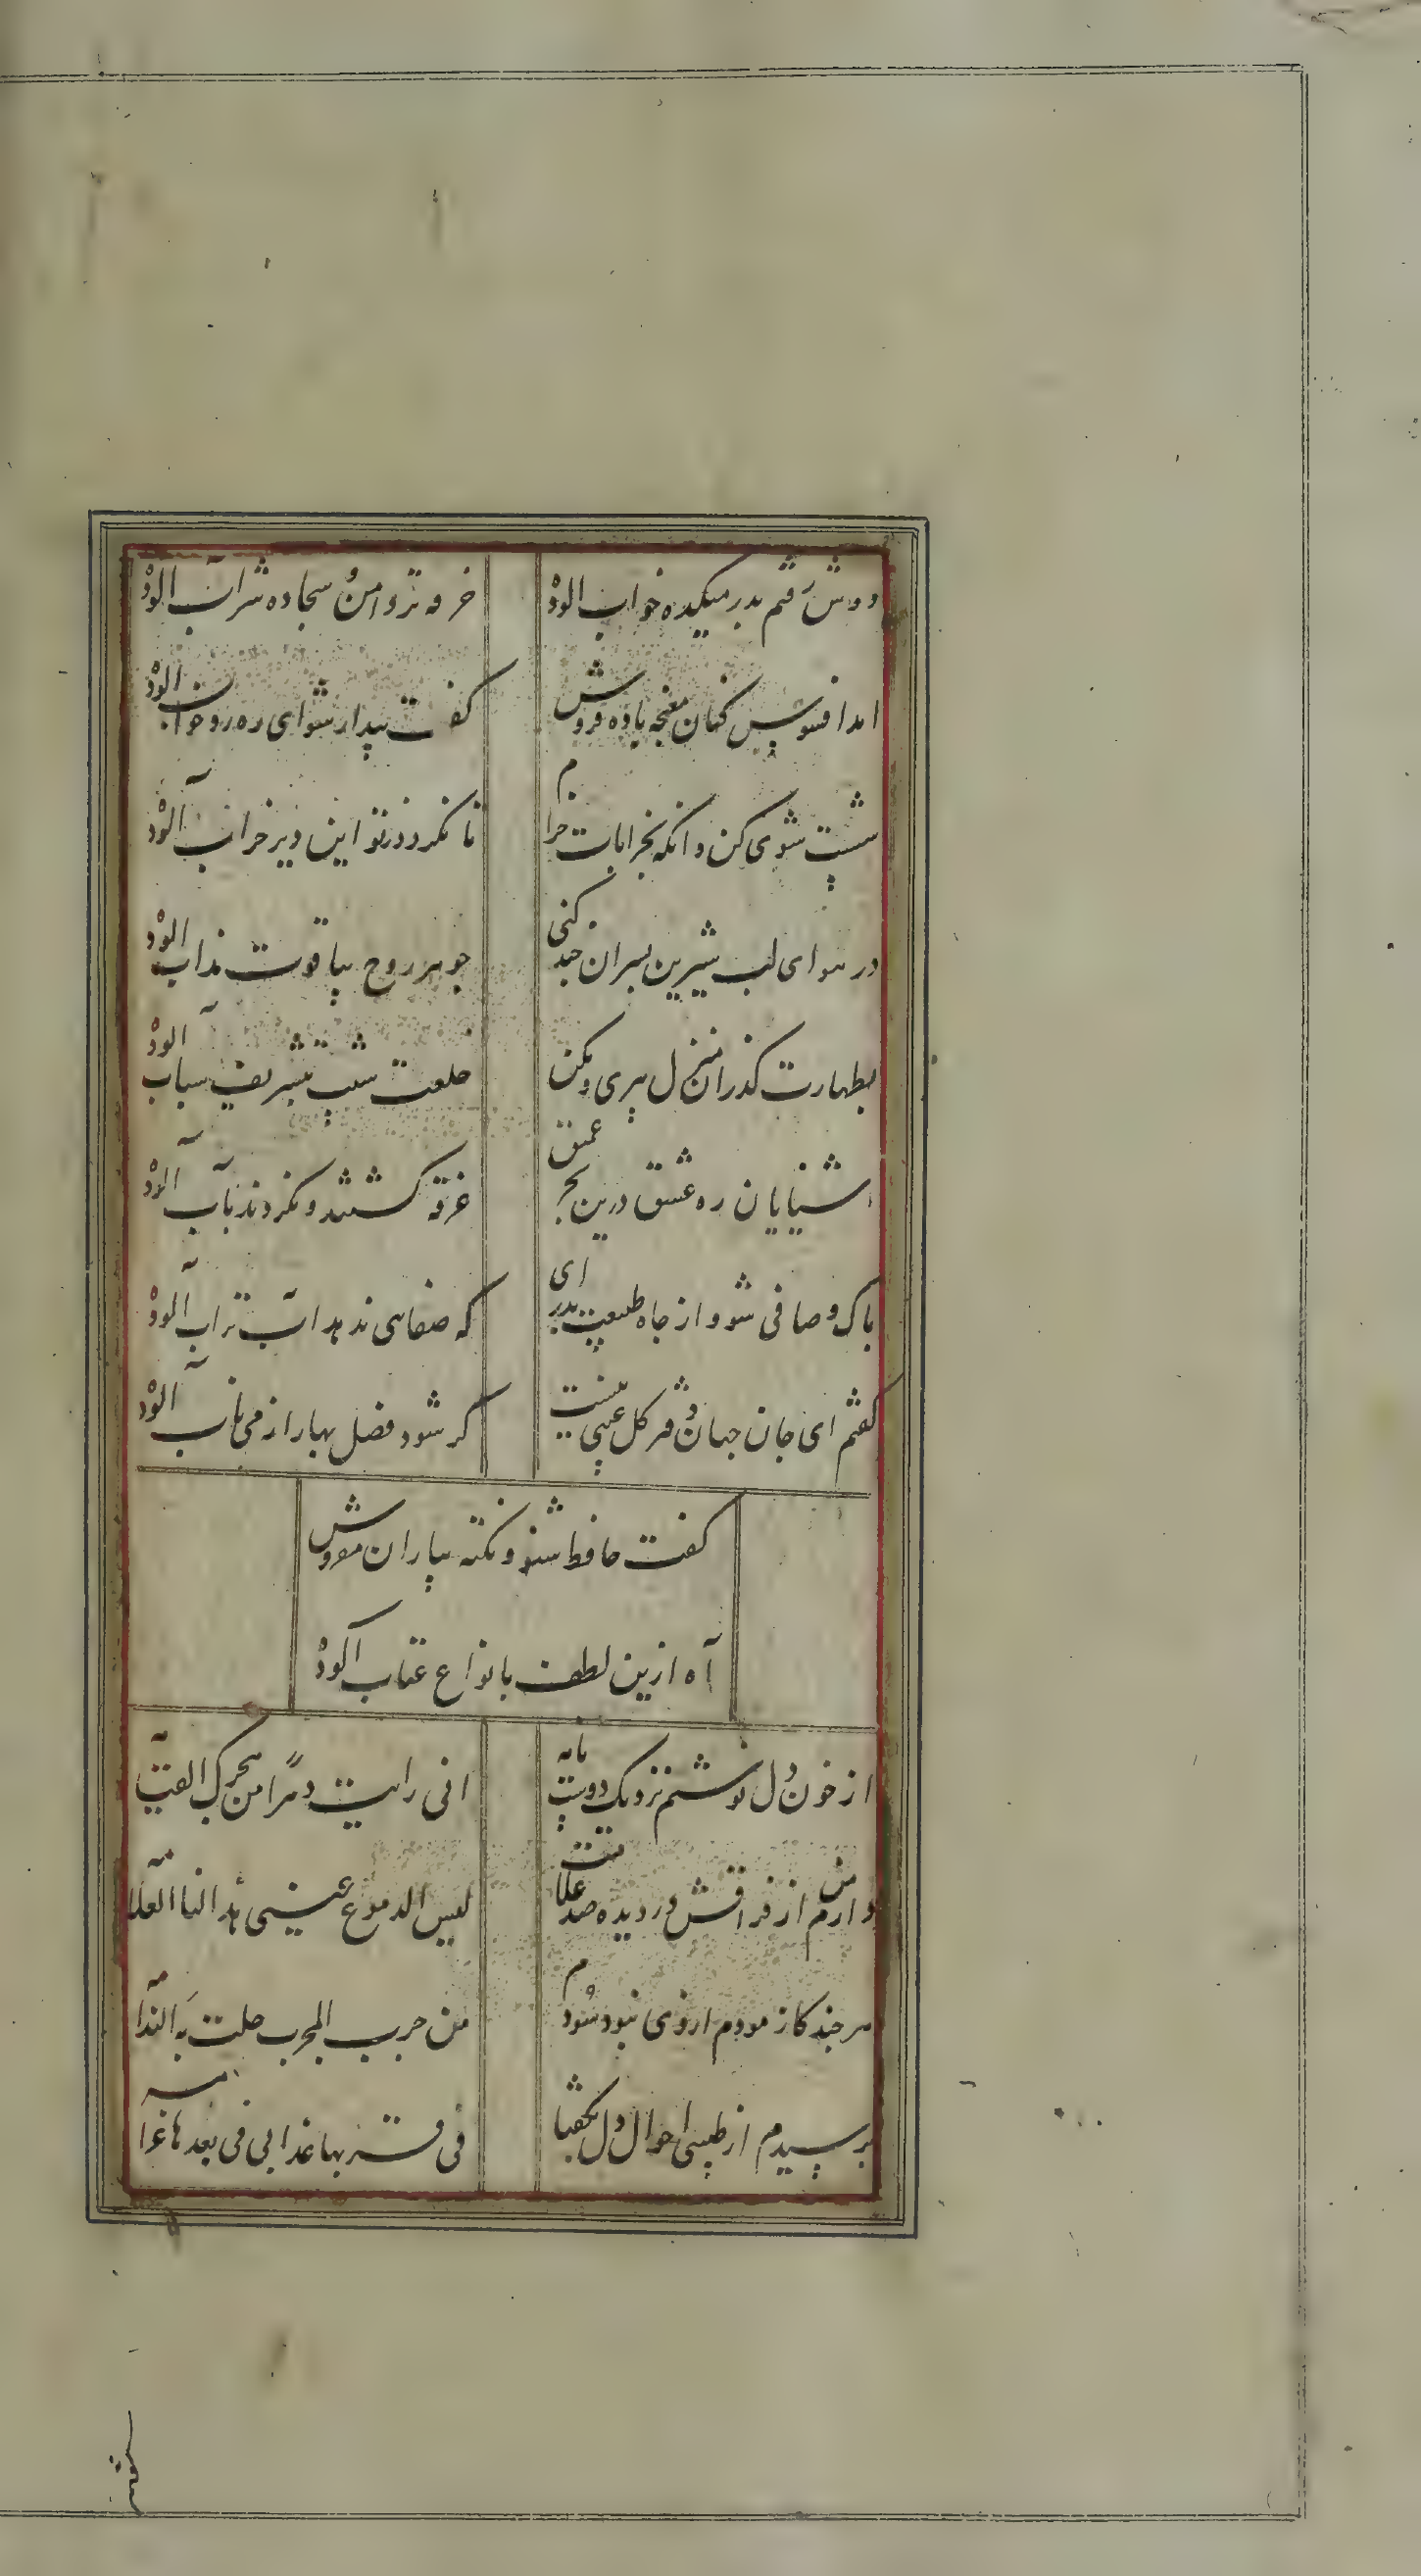 دوش رفتم بدر میکده خواب آلوده
خرقه تر دامن و سجاده شراب آلوده
امد افسوس کنان مغبچه باده فروش
کفت بیدار شو ای ره رو خواب آلوده
شست شوی کن و انکه بخرابات خرام
تا نکردد ز تو این دیر خراب آلوده
در هوای لب شیرین پسران چند کنی
جوهر روح بیاقوت مذاب آلوده
بطهارت کذران منزل پیری و مکن
خلعت شیب بتشریف شباب آلوده
اشنایان ره عشق درین بحر عمیق
غرقه کشتند و نکردند بآب آلوده
پاک و صافی شو و از جاه طبیعت بدر ای
که صفاهی ندهد آب تراب آلوده
کفتم ای جان جهان دفتر کل عیبی نیست
کر شود فصل بهار از می ناب آلوده
کفت حافظ شنو و نکته بیاران مفروش
آه ازین لطف بانواع عتاب آلوده
از خون دل نوشتم نزدیک دوست نامه
انی رایت دهرا من هجرک القیمه
دارم من از فراقش در دیده صد علامت
لیس الدموع عینی هذا لنا العلامه
هر چند کازمودم از وی نبود سودم
من جرب المجرب حلت به الندامه
پرسیدم از طبیبی احوال دل بکفتا
فی قربها عذابی فی بعدها غرامه